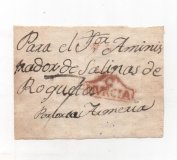 Para el Sor Aminis
trador de Salinas de
Roquetas
Por Almeria
MURCIA